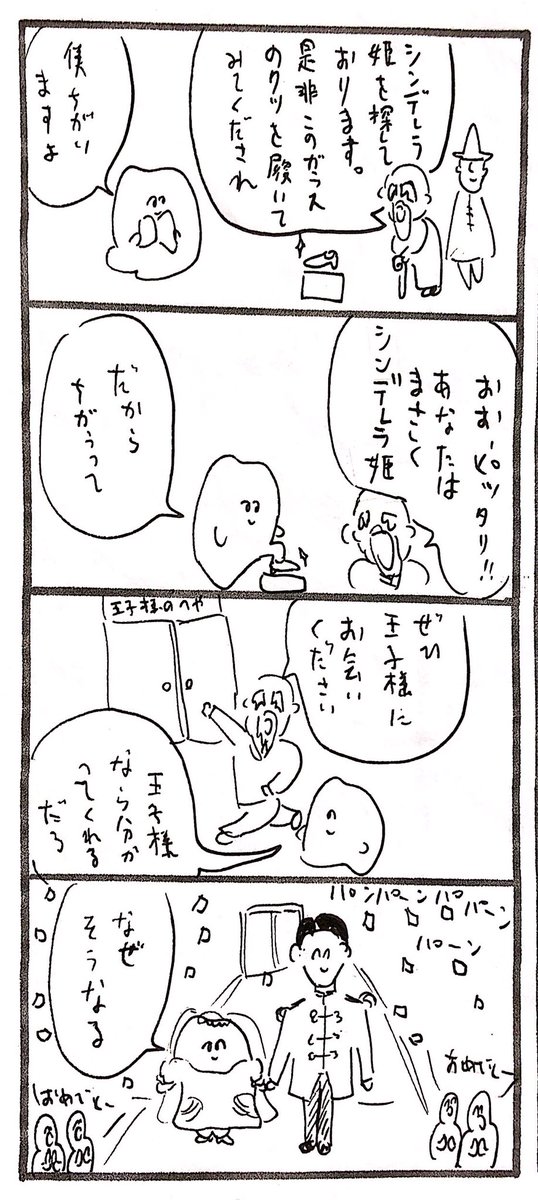 シンデレラ
姫を探して
おります。
是非このガラス
のクツを履いて
みてくだされ
僕ちがい
ますよ
おおーピッタリ!!
あなたは
まさしく
シンデレラ姫
だから
ちがうって
王子様のへや
ぜひ
王子様に
お会い
ください
王子様
なら分か
ってくれる
だろ
パンパーンパパーン
パーン
なぜ
そうなる
おめでとー
おめでとー